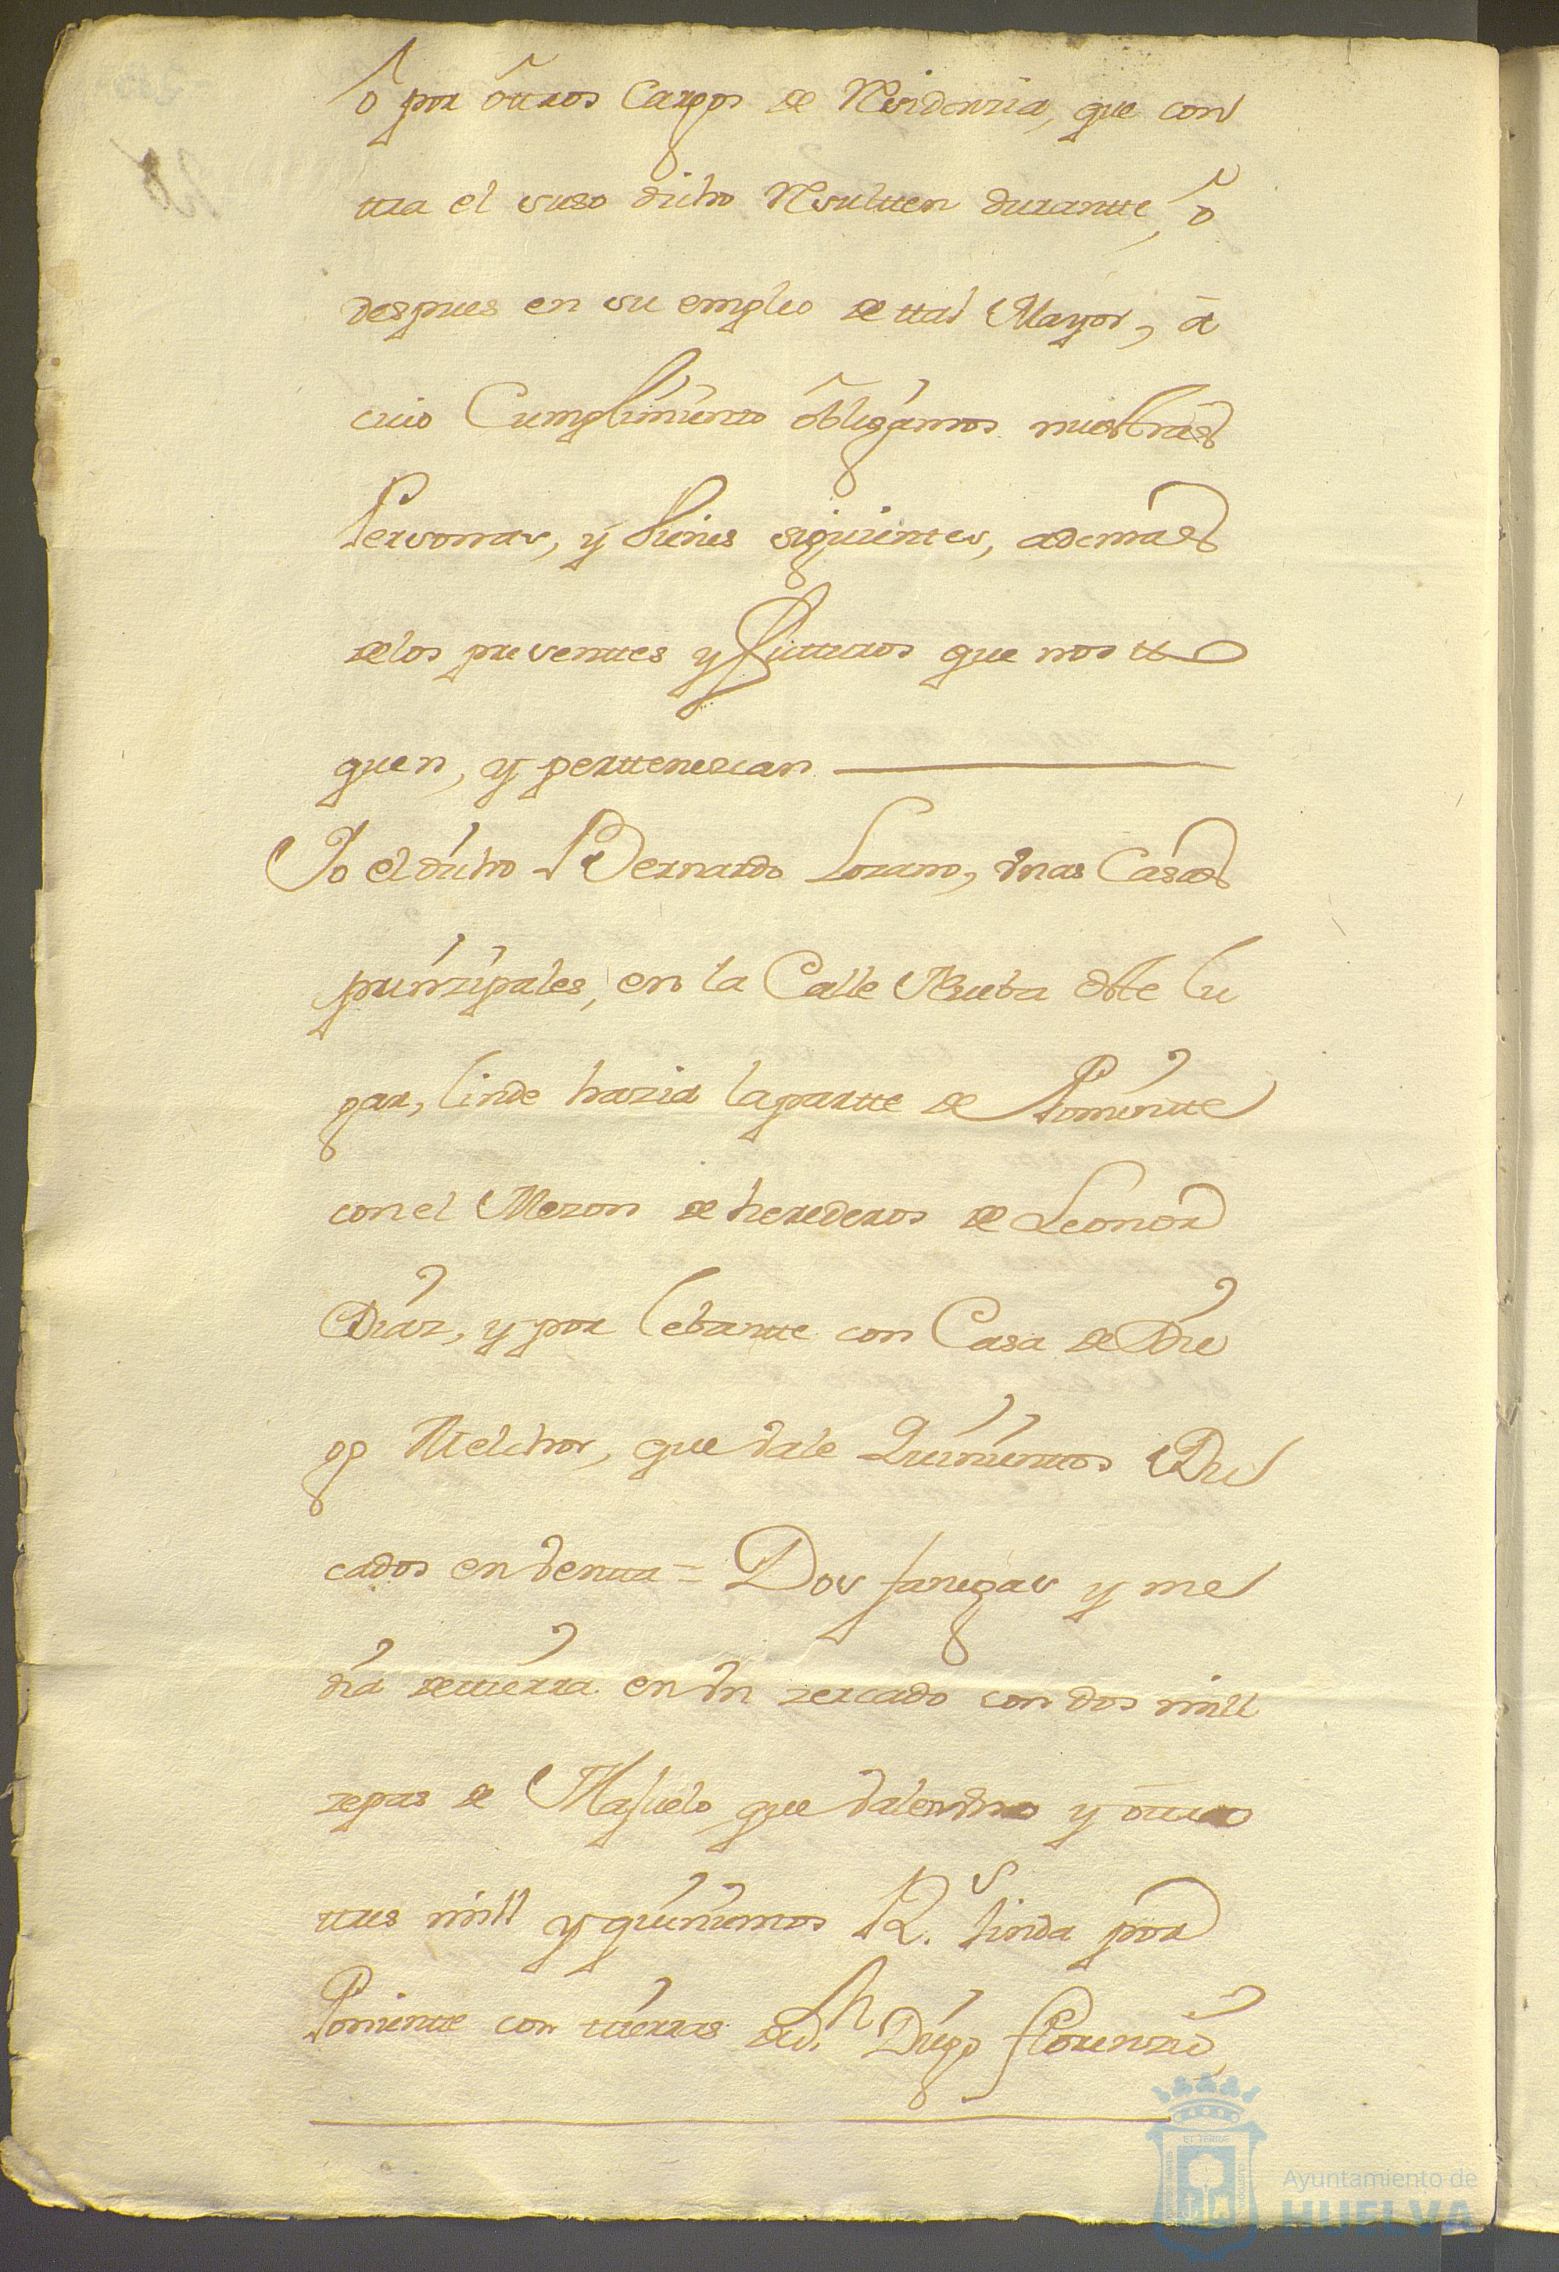 ô por ôttros Cargos de Residenzia, que con
ttra el suso dicho Resultten durantte, ô
despues en su empleo de ttal Mayor, â
cuio Cumplimiento ôbligamos nuestras
Personas, y bienes siguientes, ademas
delos presenttes y futturos que nos tto
quen, y perttenescan
Yo el dicho Bernardo Lozano, vnas Casas
prinzipales, en la Calle Nueba deste lu
gar, linde hazia lapartte de Ponientte
con el Mezon de herederos de Leonor
Diaz, y por lebantte con Casa de Die
go Melchor, que vale Quinienttos Du
cados en ventta = Dos fanegas y me
dia dettierra en vn zercado con dos mill
zepas de Majuelo que valen vno y ôttro
ttres mill y quinientos R.s linda por
Ponientte con ttierras de D.n Diego Florenzio,
Ayuntamiento de
HUELVA